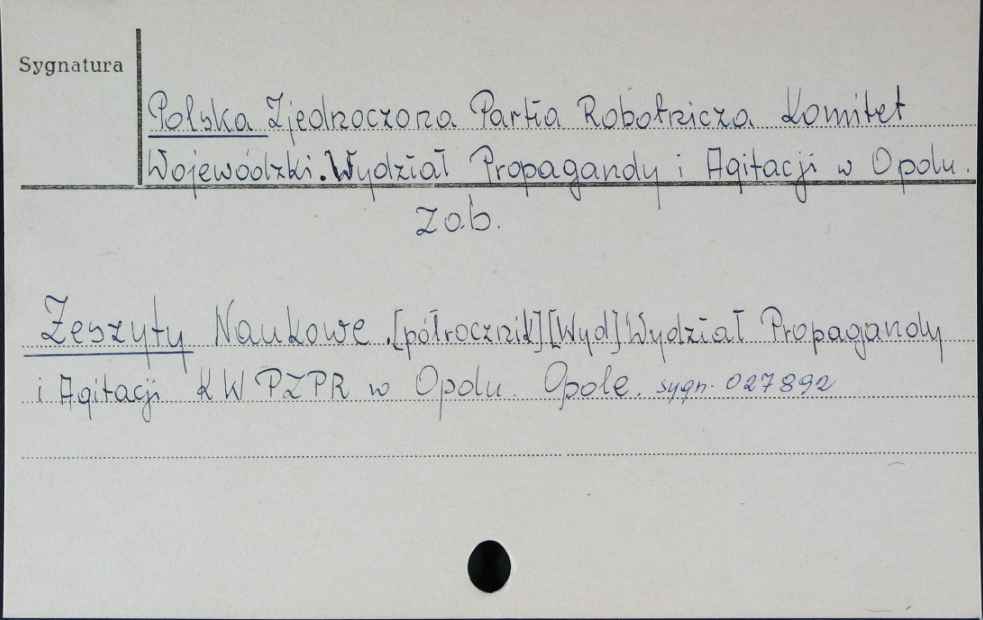 Sygnatura
Polska Zjednoczona Partia Robotnicza Komitet
Wojewódzki. Wydział Propagandy i Agitacji w Opolu.
Zob.
Zeszyty Naukowe. [półrocznik] [Wyd] Wydział Propagandy
i Agitacji KW PZPR w Opolu. Opole. sygn. 027892